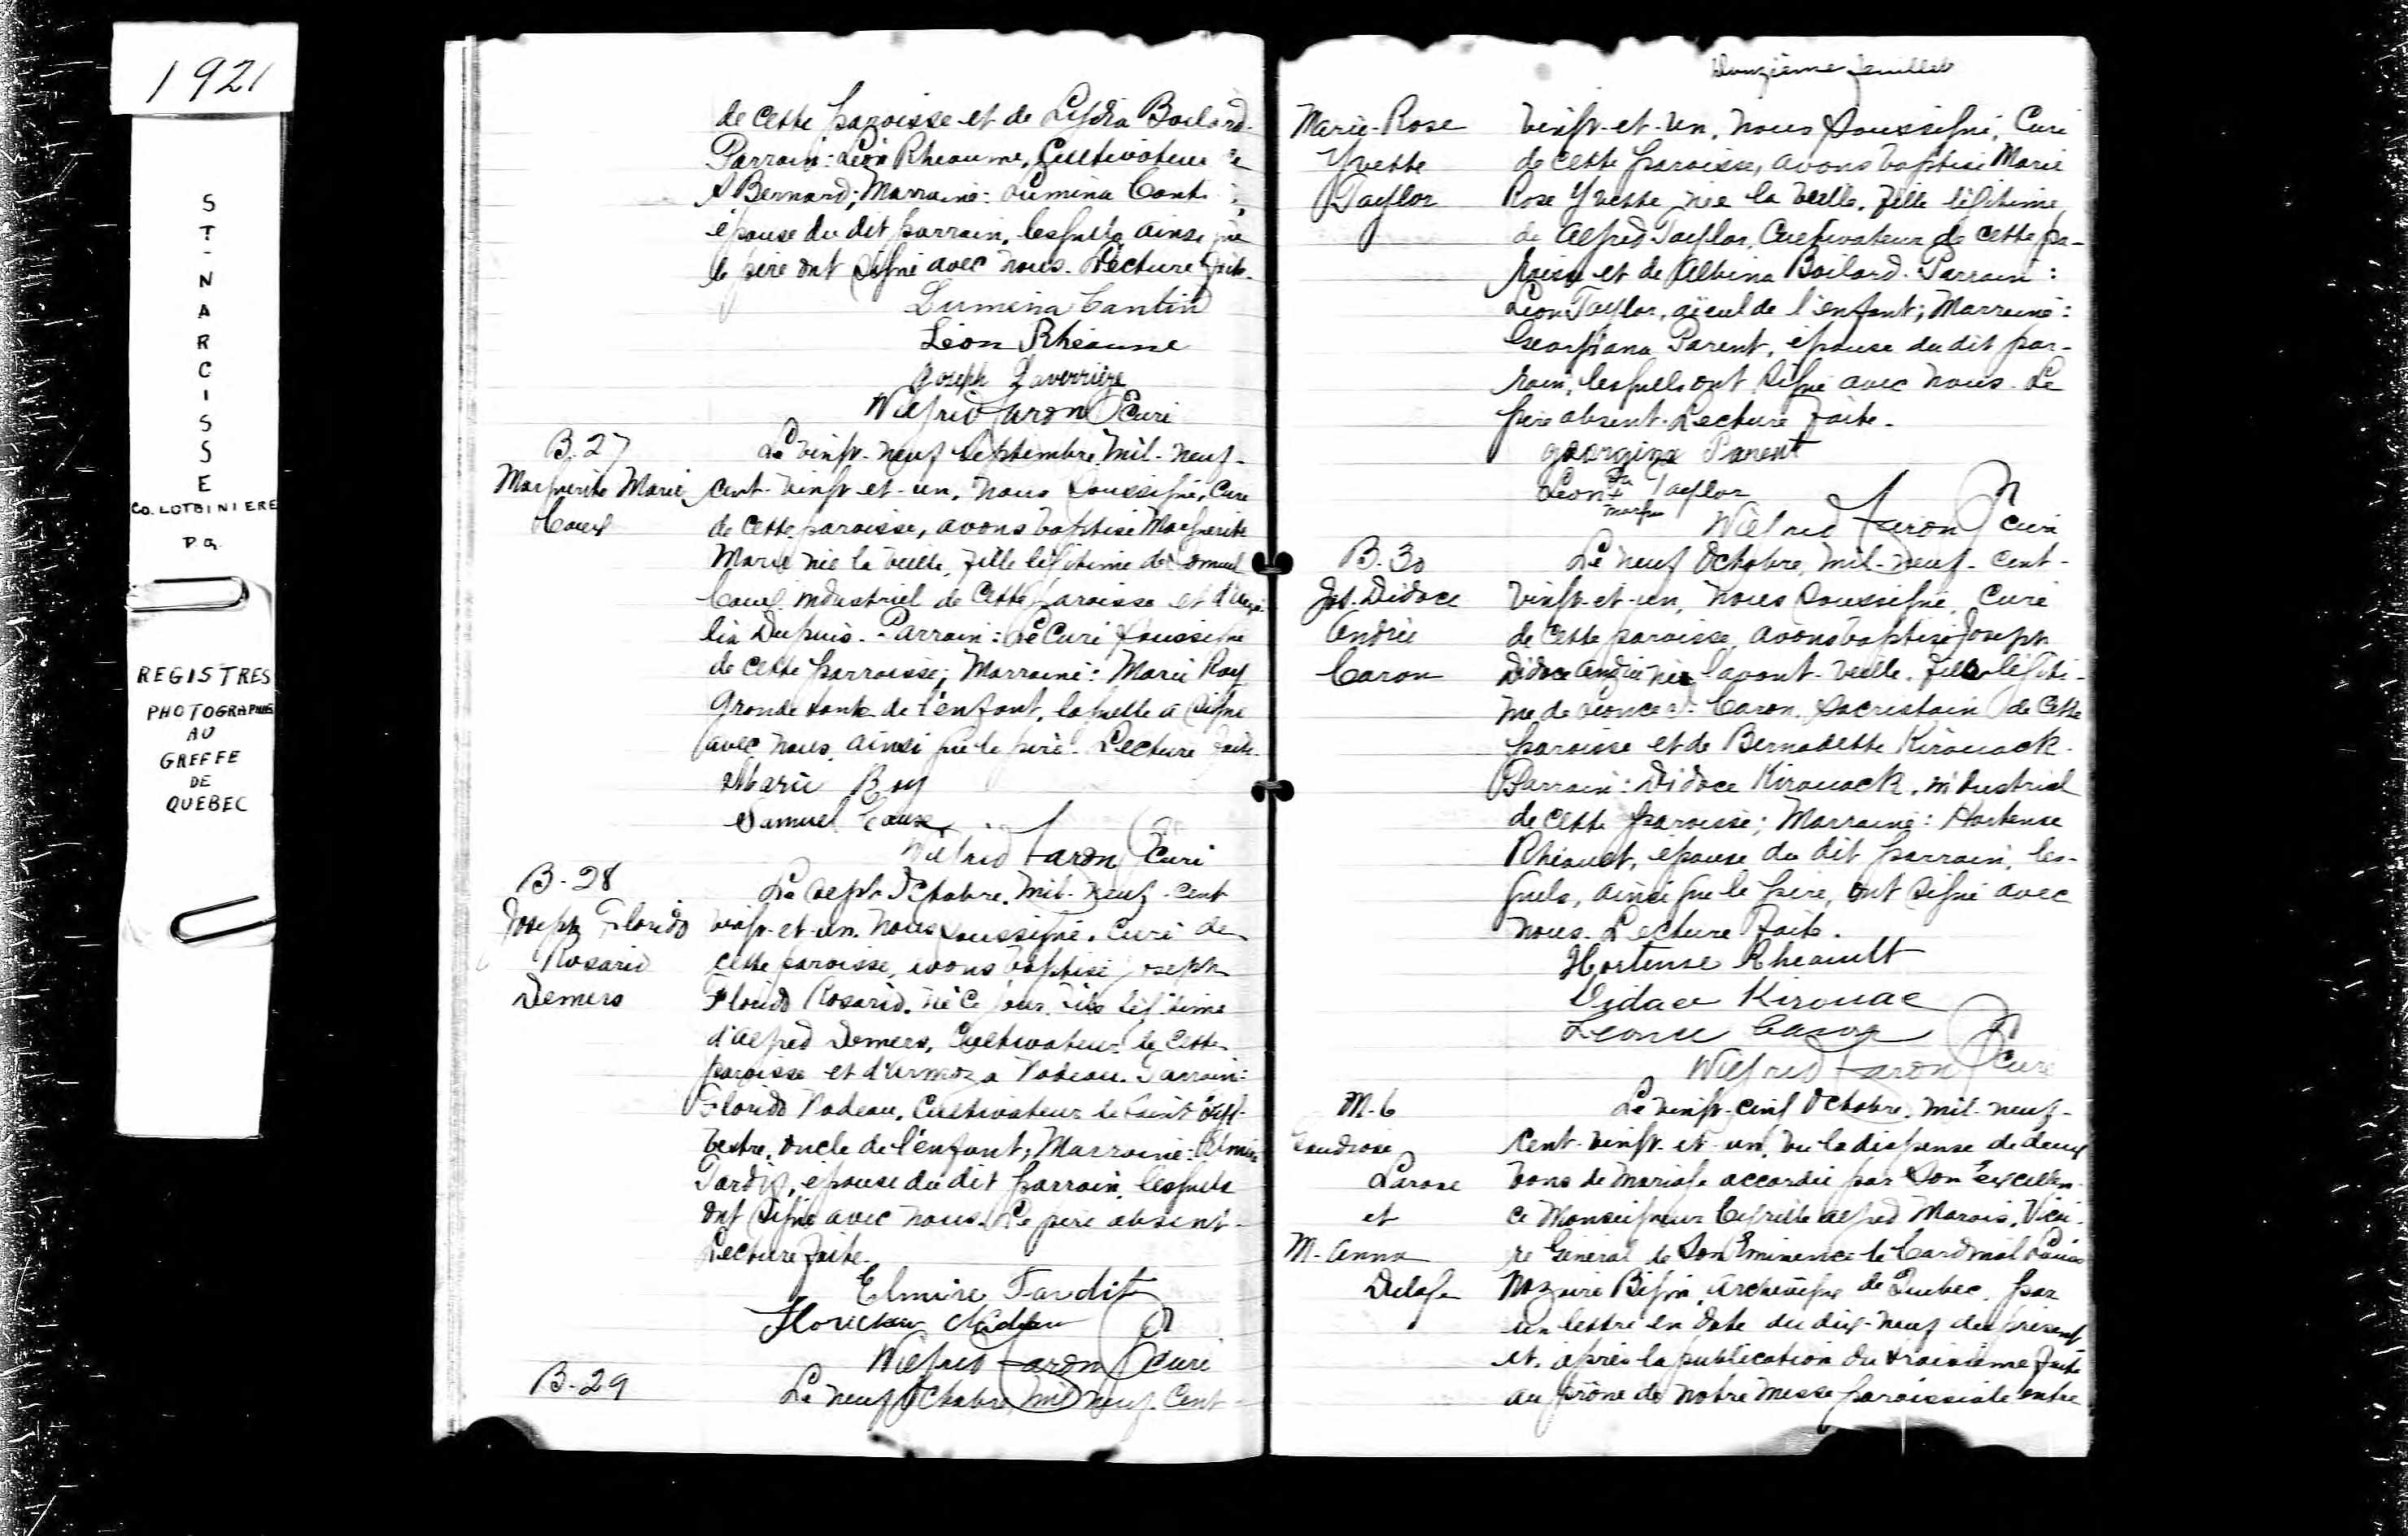 1921
ST-NARCISSE
CO. LOTBINIERE
P.Q.
REGISTRES
PHOTOGRAPHIES
AU
GREFFE
DE
QUEBEC
de cette paroisse et de Lydia Boilard.
Parrain: Léon Rheaume, Cultivateur de
St Bernard; Marraine: Lumina Cant
épouse du dit parrain, lesquels, ainsi que
le père ont signé avec nous. Lecture faite.
Lumina Cantin
Léon Rhéaume
Joseph Laverrière
Wilfrid Caron Curé
B. 27
Marguerite Marie
Le vingt-neuf Septembre, mil-neuf-
cent-vingt-et-un, nous soussigné, Curé
de cette paroisse, avons baptisé Marguerite
Marie née la veille, fille légitime de
industriel de cette paroisse et
lia Dupuis. Parrain: Le Curé soussigné
de cette parroisse; Marraine: Marie Roy
Grande tante de l'enfant, laquelle a signé
avec nous, ainsi que le père. Lecture faite.
Marie Roy
Samuel
Wilfrid Caron Curé
B-28
Joseph Florido
Rosario
Demers
Le sept Octobre, mil-neuf-cent
vingt-et-un, nous soussigné, Curé de
cette paroisse, avons baptisé Joseph
Florido Rosario, né ce jour, fils légitime
d'Alfred Demers, Cultivateur de cette
paroisse et d'Armoza Nadeau. Parrain:
Florido Nadeau, Cultivateur de Saint Syl-
vestre, oncle de l'enfant; Marraine: Elmire
Tardif, épouse du dit parrain, lesquels
ont signé avec nous. Le père absent-
Lecture faite.
Elmire Tardif
Nadeau
Wilfrid Caron Curé
B-29
Le neuf Octobre, mil neuf-Cent-
Douzième feuillet
Marie-Rose
Yvette
Taylor
vingt-et-un, nous soussigné, Curé
de cette paroisse, avons baptisé Marie
Rose Yvette née la veille, fille légitime
de Alfred Taylor, Cultivateur de cette pa-
roisse et de Albina Boilard. Parrain:
Léon Taylor, aïeul de l'enfant; Marraine:
Georgiana Parent, épouse du dit par-
rain, lesquels ont signé avec nous. Le
père absent. Lecture faite.
georgina Parent
Leon sa + marque Taylor
Wilfrid Caron Curé
B-30
Jos. Didace
Andrée
Caron
Le neuf Octobre, mil-neuf-cent-
vingt-et-un, nous soussigné, Curé
de cette paroisse, avons baptisé Joseph
Didace Andrée né l'avant-veille, fils légiti-
me de Caron, Sacristain de cette
paroisse et de Bernadette Kirouack.
Parrain: Didace Kirouack, industriel
de cette paroisse; Marraine: Hortense
épouse du dit parrain, les-
quels, ainsi que le père, ont signé avec
nous. Lecture faite.
Hortense Rheault
Didace Kirouac
Léonce Caron
Wilfrid Caron Curé
M-6
Larose
et
M-Anna
Le vingt-cinq Octobre, mil-neuf-
cent-vingt-et-un, vu la dispense de deux
bans de mariage accordée par Son Excellen-
ce Monseigneur Cyrille Alfred Marois, Vicai-
re Général de Son Eminence le Cardinal Louis
Nazaire Bégin, Archevêque de Québec, par
un lettre en date du dix-neuf du présent
et, après la publication du troisième faite
au prône de notre messe paroissiale entre